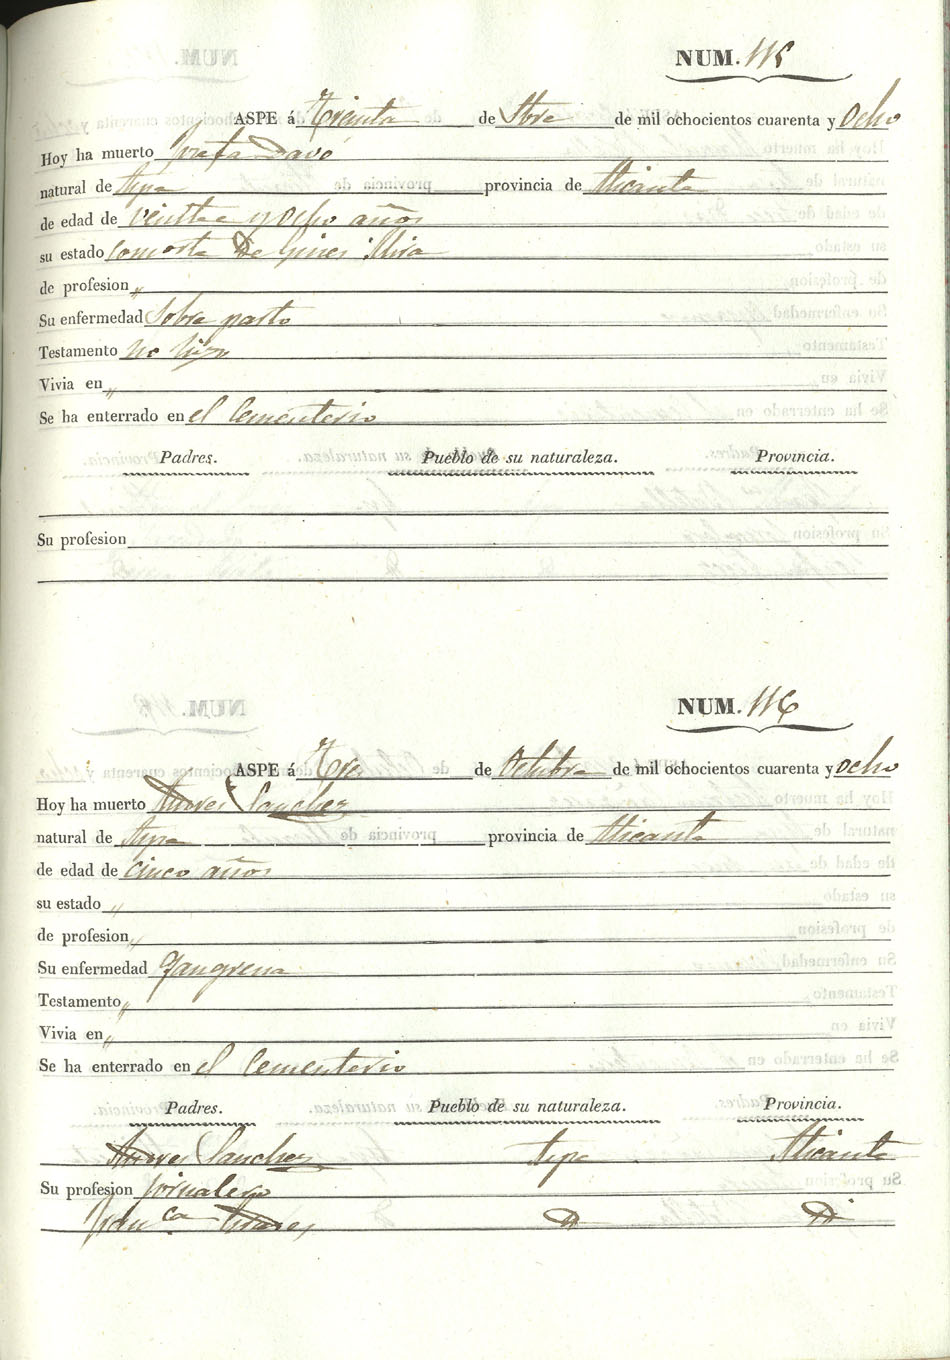 NUM. 115
ASPE á Treinta de 7bre de mil ochocientos cuarenta y Ocho
Hoy ha muerto Josefa Davó
natural de Aspe provincia de Alicante
de edad de veintte y Ocho años
su estado Consorte de Gines Mira
de profesion „
Su enfermedad Sobre parto
Testamento no hizo
Vivia en „
Se ha enterrado en el Cementerio
Padres. Pueblo de su naturaleza. Provincia.
Su profesion
NUM. 116
ASPE á Tres de Octubre de mil ochocientos cuarenta y ocho
Hoy ha muerto Andres Sanchez
natural de Aspe provincia de Alicante
de edad de cinco años
su estado „
de profesion „
Su enfermedad Gangrena
Testamento „
Vivia en „
Se ha enterrado en el Cementerio
Padres. Pueblo de su naturaleza. Provincia.
Andres Sanchez Aspe Alicante
Su profesion jornalero
Fran.ca